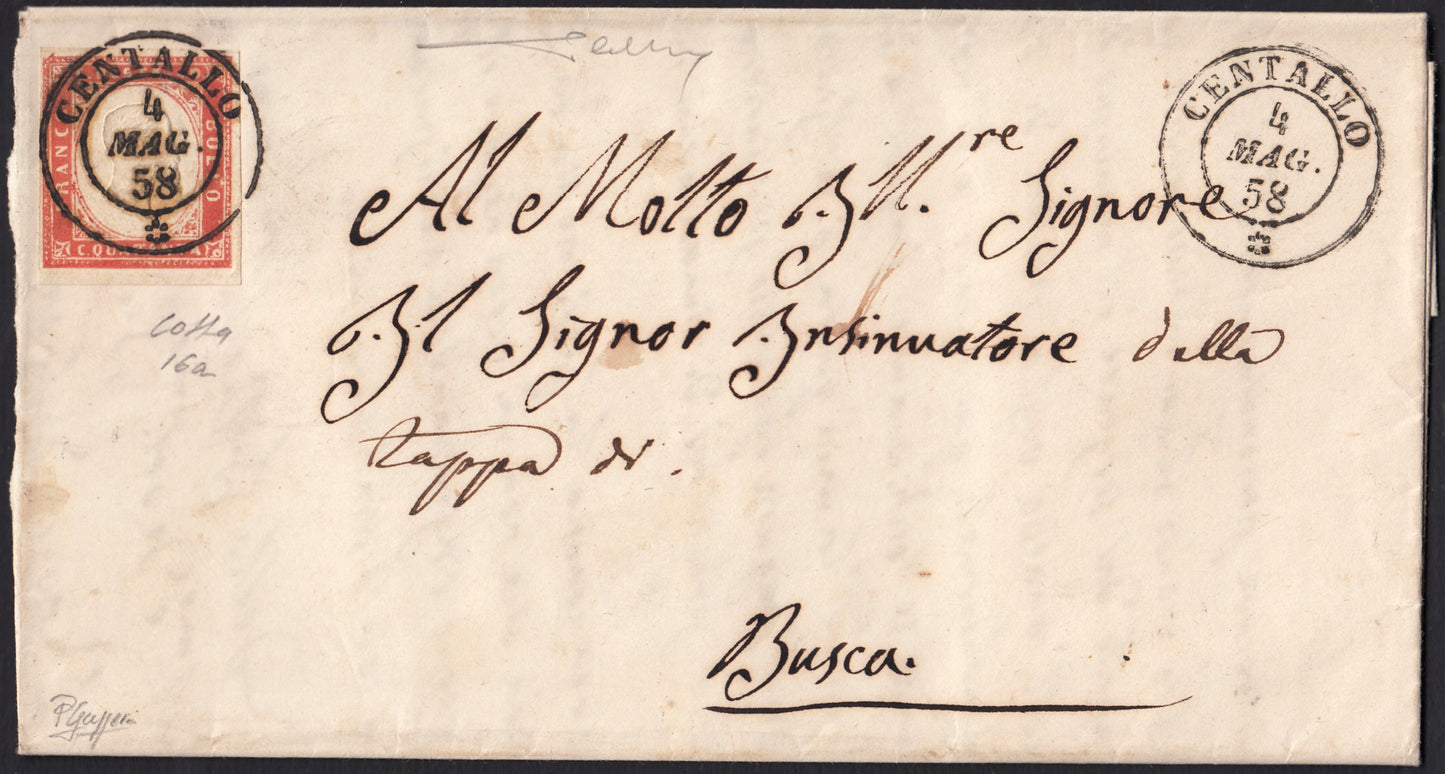 CENTALLO
4
MAG.
58
FRANCO
BOLLO
C. QUARANTA
CENTALLO
4
MAG.
58
Al Molto Ill.re Signore
Il Signor Insinuatore della
tappa di.
Busca.
16a